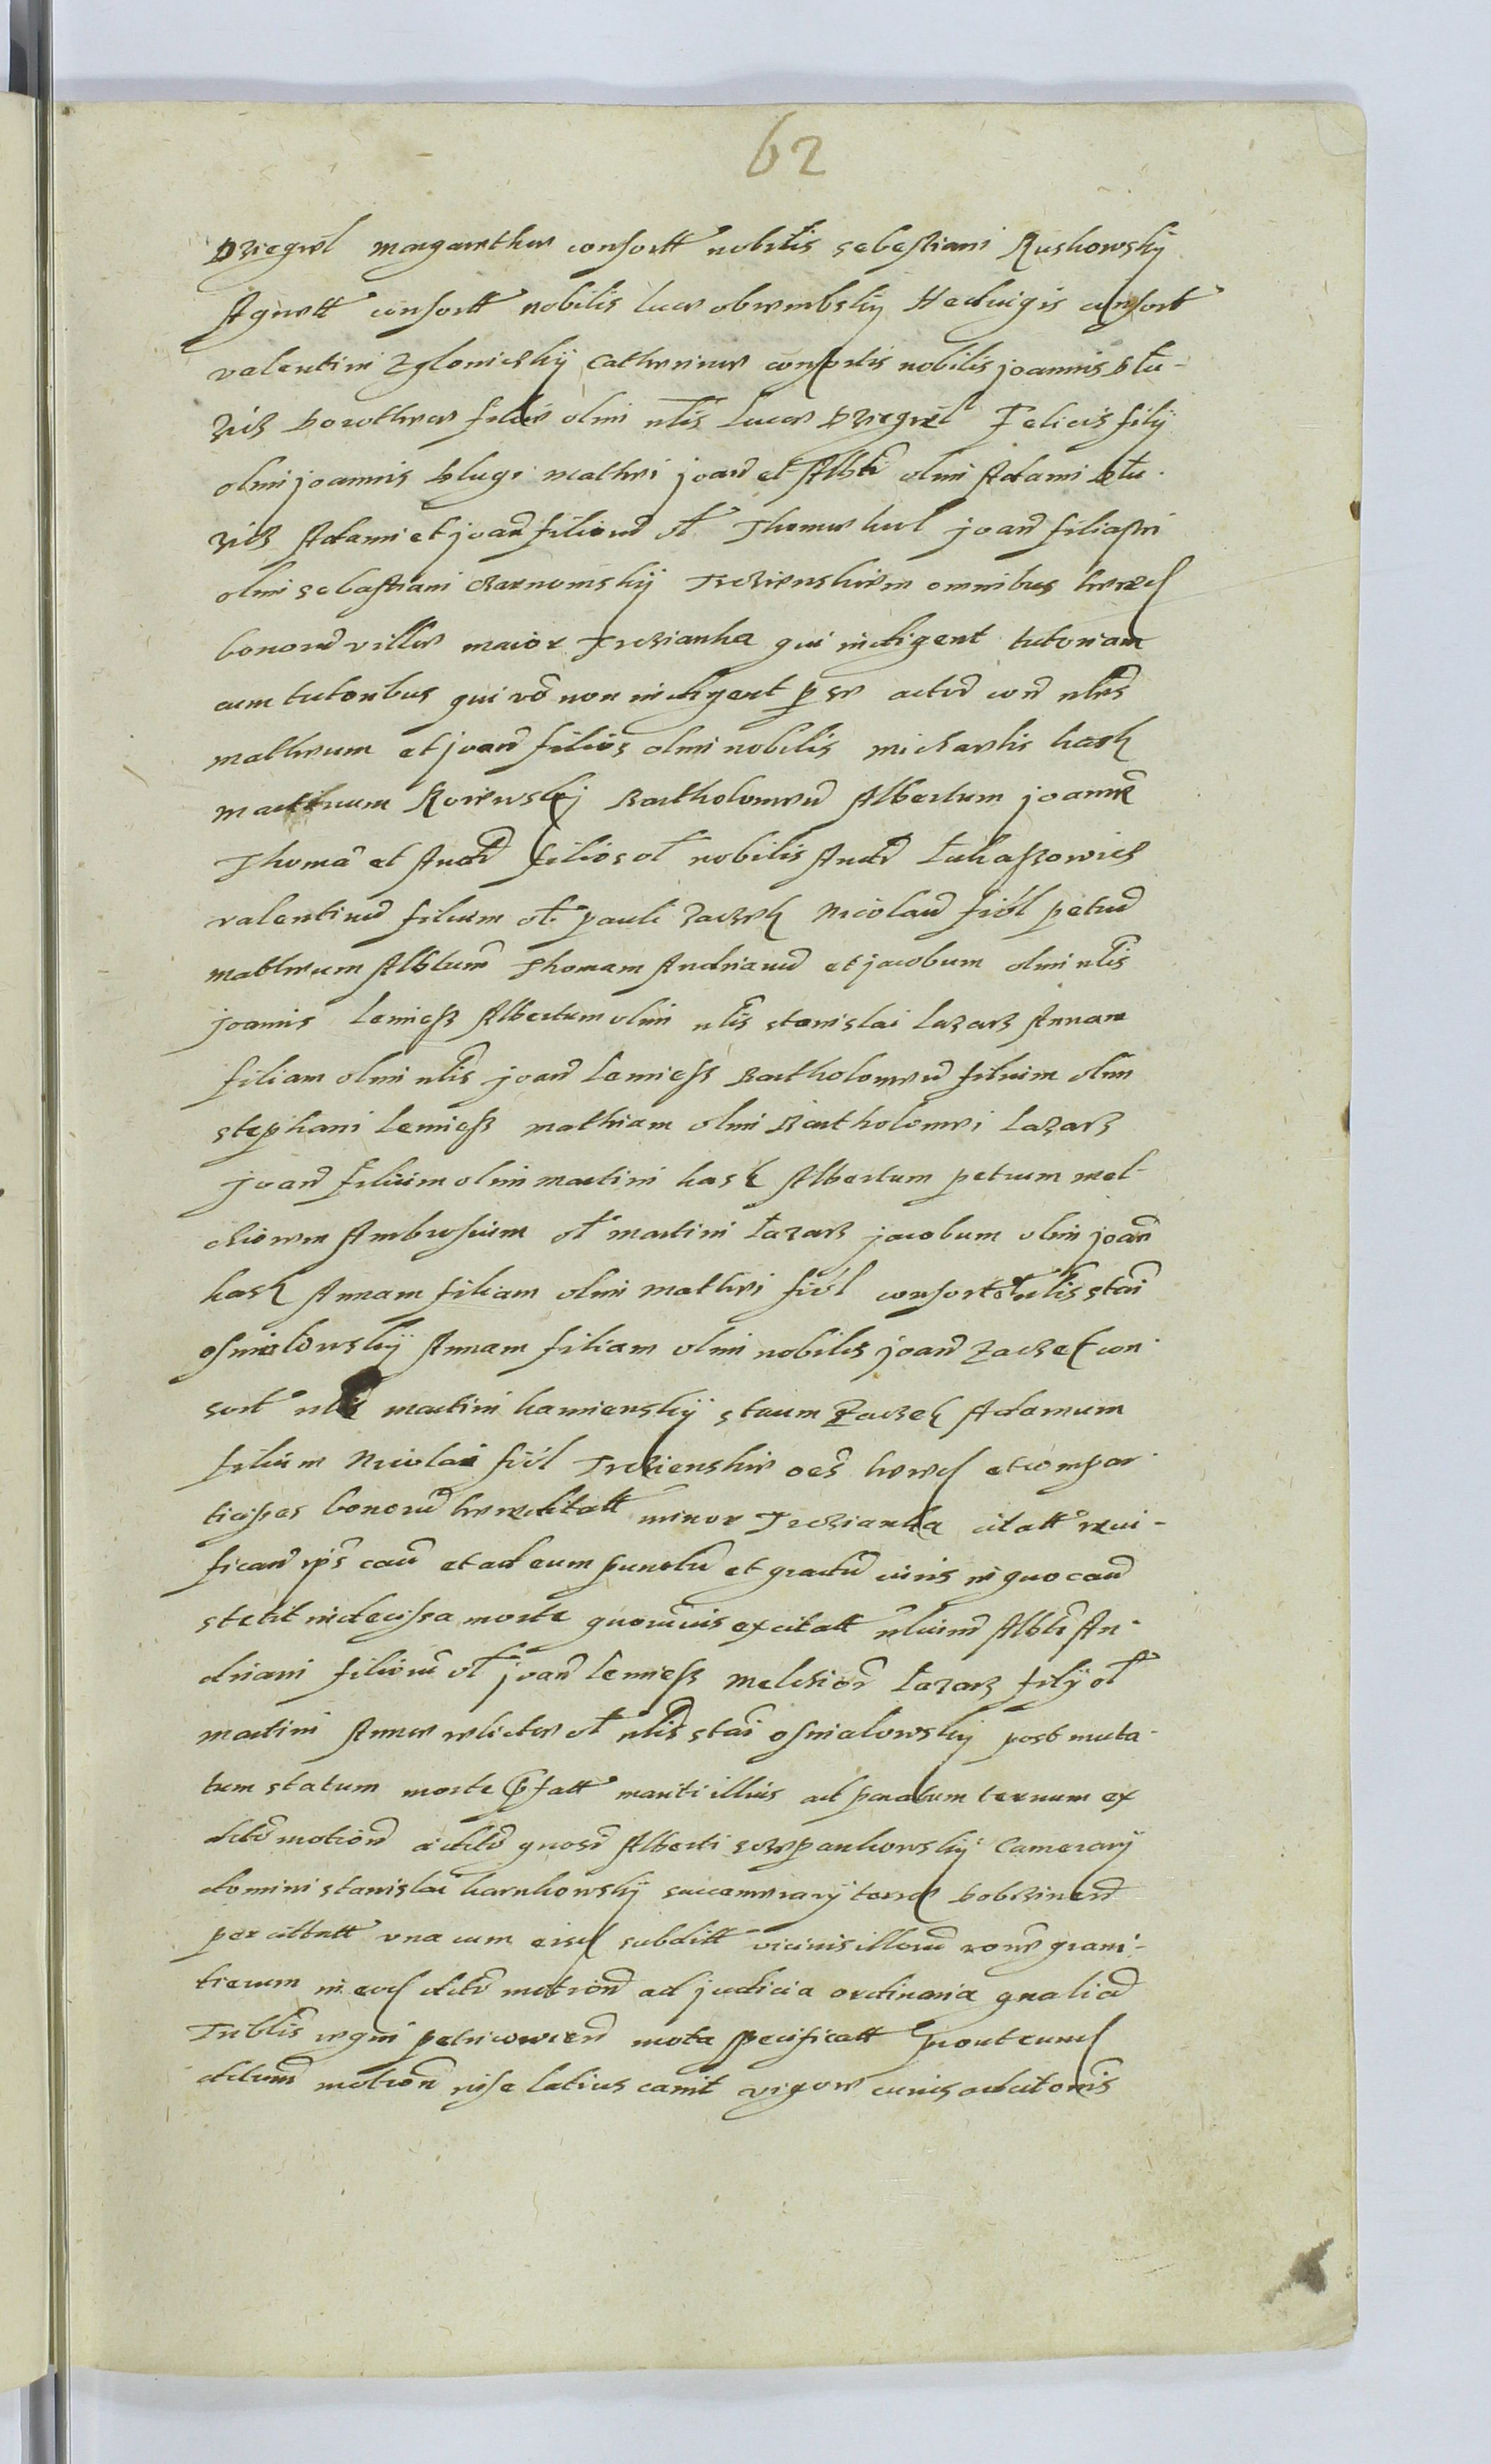 62
Dziegiel margarethae consortt nobilis sebestiani Ruskowskÿ
Agnett consortt nobilis lucae obrembskÿ Heduigis consort
valentini Zglenickÿ Catherinae consortis nobilis joannis Dlu-
zicz Dorotheae filiae olim nlis Lucae Dziegiel Felicis filÿ
olim joannis Dlugi mathei joan et Albti olim Adami Dlu-
zicz Adami et joan filiorum ol Thomae kul joan filiastri
olim sebastiani Czarnomskÿ Trczienskim omnibus haered
bonorum villae maior Trczianka qui indigent tutoriam
cum tutoribus qui vo non indigent p se actor con nles
mathaeum et joan filios olim nobilis michaelis kask
martinum Rosiewskÿ Bartholomeum Albertum joanne
Thoma et Andr filios ol nobilis Andr Lukaszowicz
valentinum filium ol pauli Zaczek Nicolaum fiol petrum
mathaeum Albtum Thomam Andrianum et jacobum olim nlis
joannis Lemiesz Albertum olim nlis stanislai Lazarz Annam
filiam olim nlis joan Lemiesz Bartholomeum filium olim
stephani Lemiesz mathiam olim Bartholomei Lazarz
joan filium olim martini kask Albertum petrum mel-
chiorem Ambrosium ol martini Lazarz jacobum olim joan
kask Annam filiam olim mathei fiol consort nlis stai
osmialowskÿ Annam filiam olim nobilis joan Zaczek con-
sort nlis martini kamienskÿ staum Zaczek Adamum
filium Nicolai fiol Trczienskie oes haered et compar-
ticipes bonorum haereditatt minor Trczianka citatt reui-
fican ips cau et ad eum punctum et gradum iuris in quo cau
stetit indecissa morte quoruuis excitatt nlium Albti An-
driani filiorum ol joan Lemiesz melchior Lazarz filÿ ol
martini Annae relictae ol nlis stai osmialowskÿ post muta-
tum statum morte pfatt mariti illius ad paratum ternum ex
dila motion actor gnosi Alberti szczepankowskÿ Camerarÿ
domini stanislai karnkowskÿ succamerarÿ terrae Dobrzinen
per citatt vna cum eisd subditt vicinis illorum rone grani-
tierum in eod dila motion ad judicia ordinaria gnalia
Triblis regni petricouien mota specificatt prout eund
dilum motion in se latius canit vigore cuius adcitonis